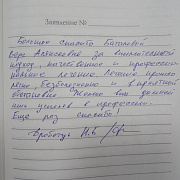 Заявление №
Большое спасибо Баталовой
Вере Алексеевне за внимательный
подход, качественное и профессио-
нальное лечение. Лечение прошло
легко, безболезненно и в приятной
обстановке. Желаю вам дальней-
ших успехов в профессии.
Еще раз спасибо!